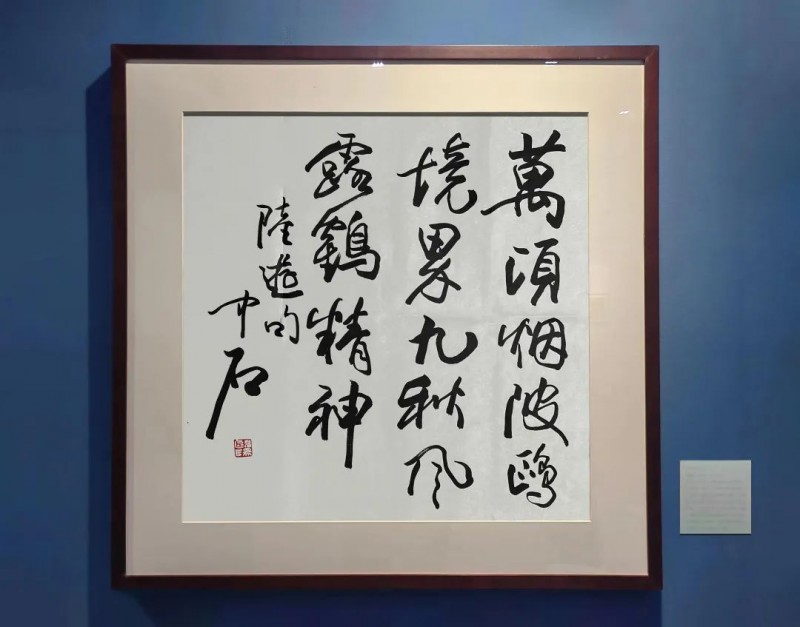 萬頃烟陂鷗
境界九秋風
露鶴精神
陸游句
中石